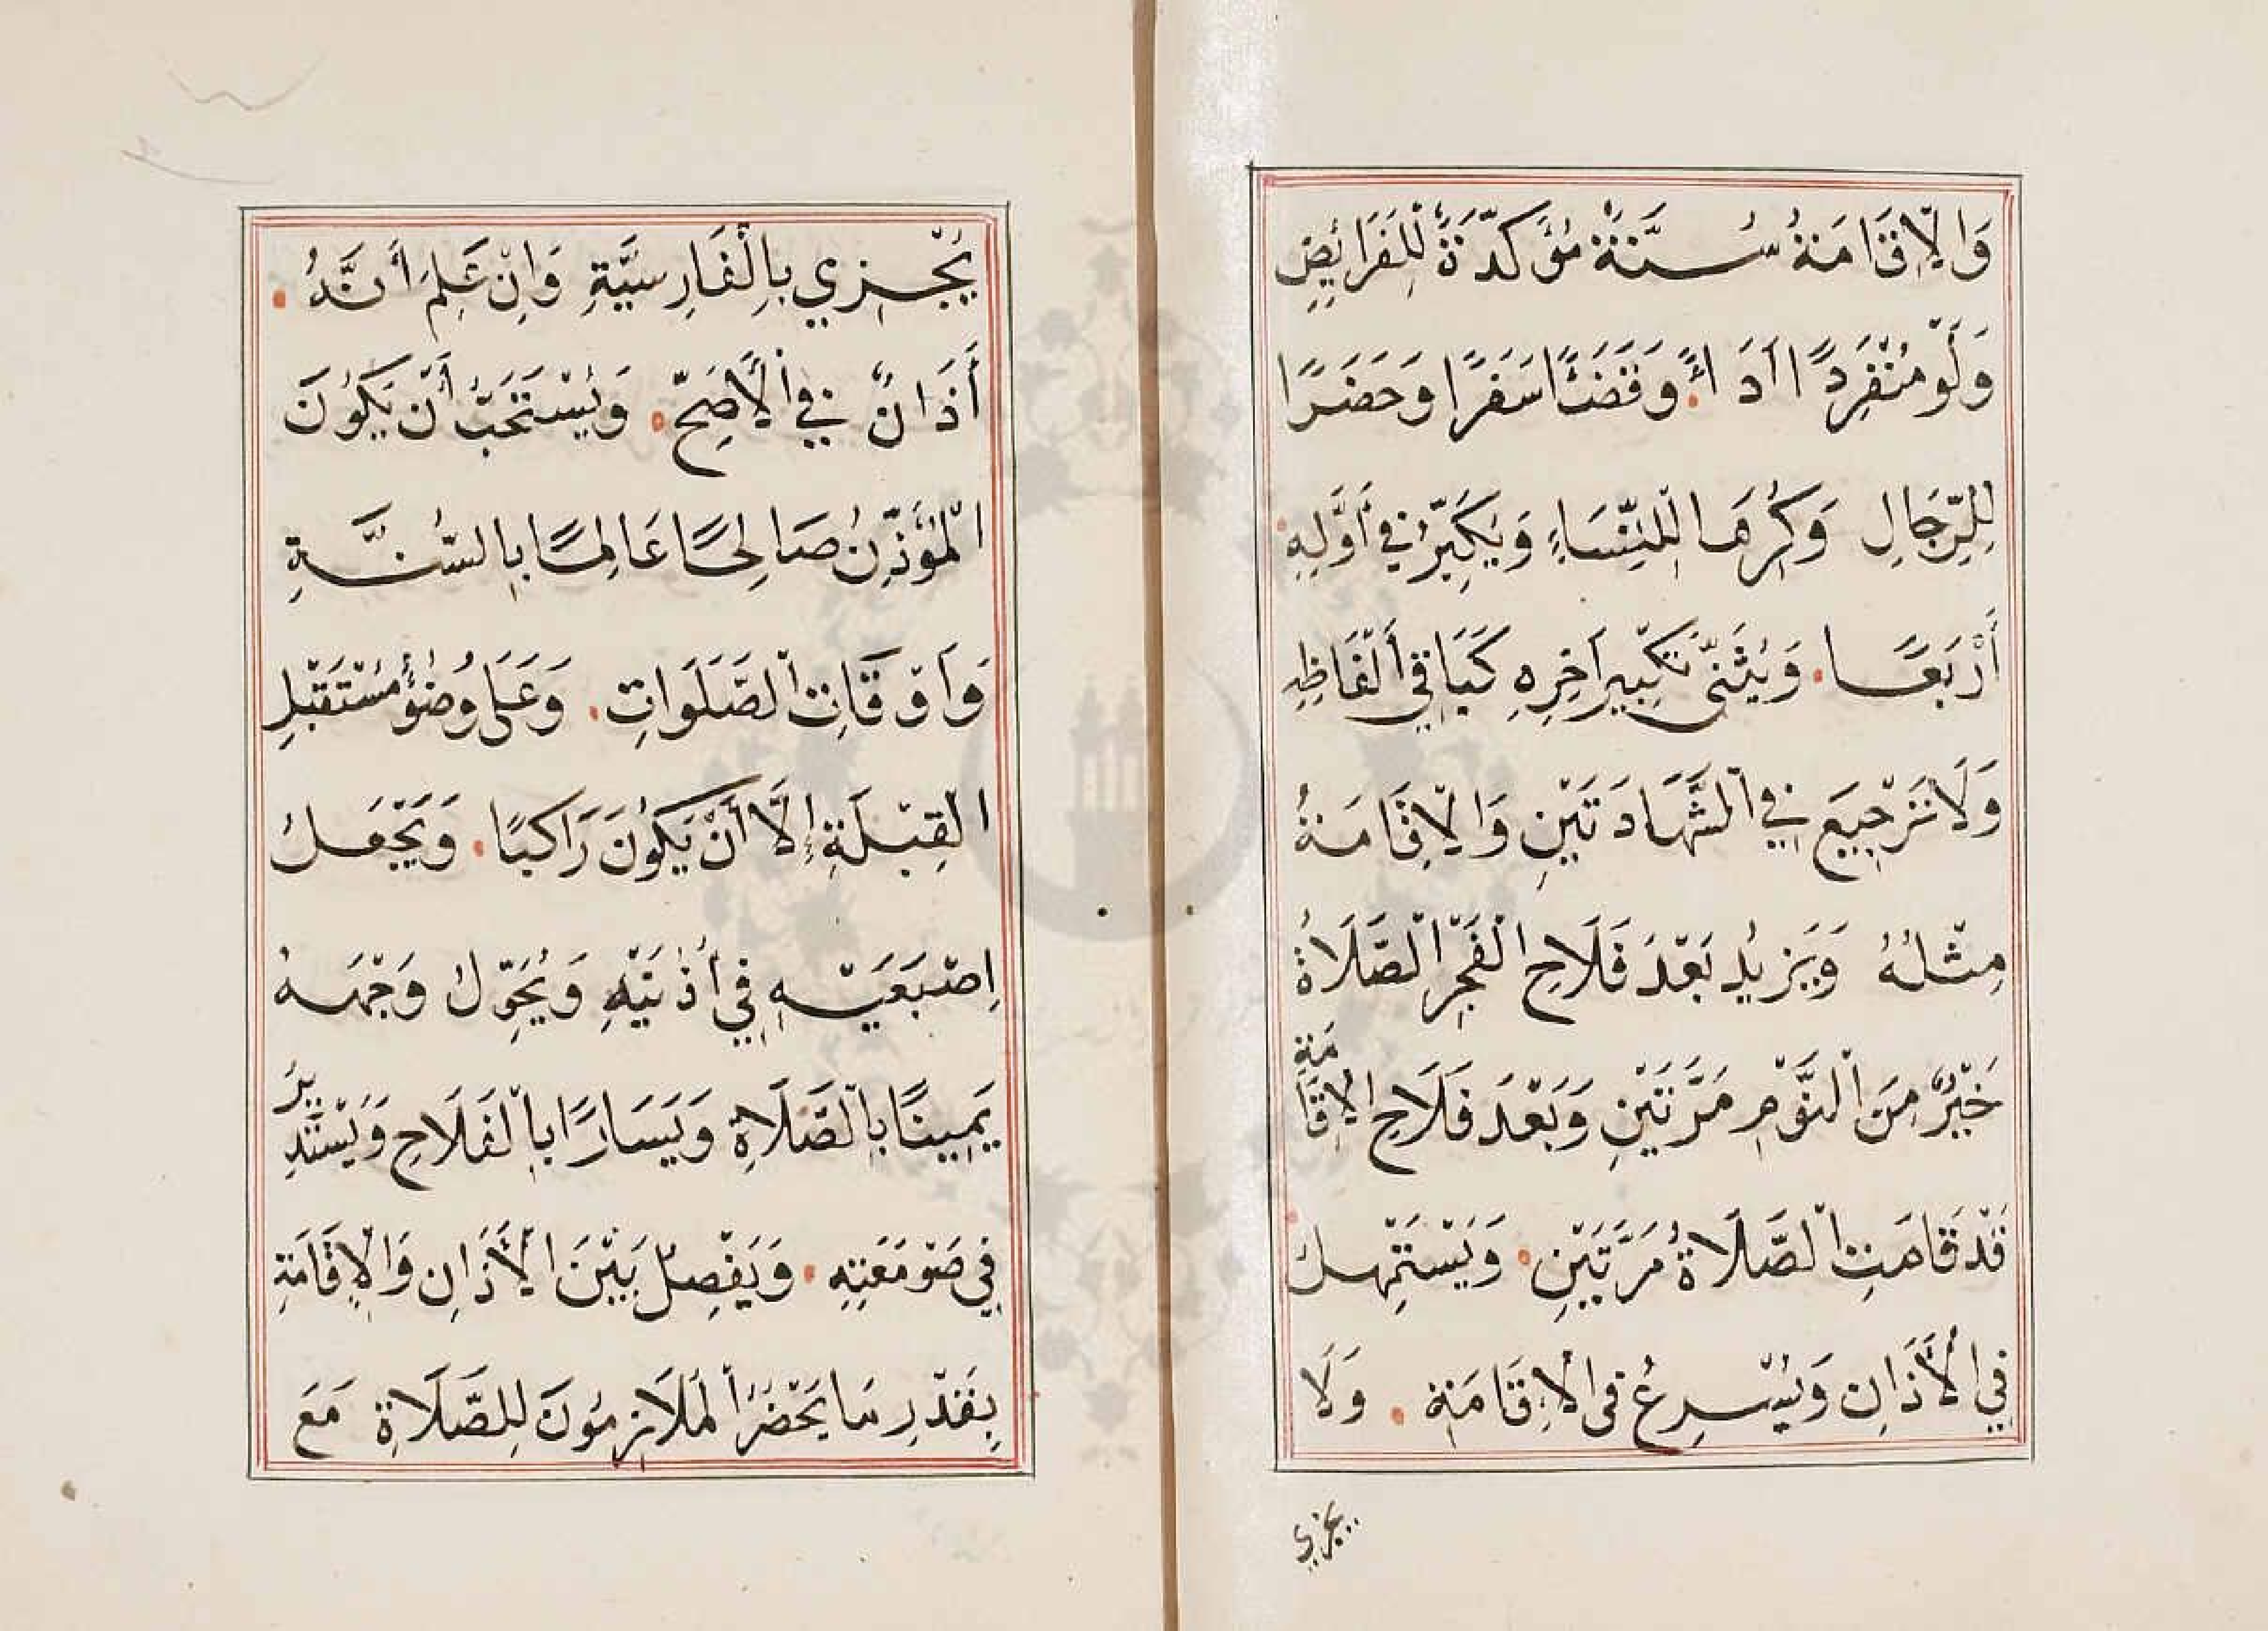 وَالْاِقَامَةُ سُنَّةٌ مُؤَكَّدَةٌ لِلْفَرَائِضِ
وَلَوْ مُنْفَرِدًا اَدَاءً. وَقَضَاً سَفَرًا وَحَضَرًا
لِلرِّجَالِ وَكُرِهَا لِلنِّسَاءِ وَيُكَبِّرُ فِي أَوَّلِهِ
أَرْبَعًا. وَيُثَنِّى تَكْبِيرَ اَخِرِهِ كَبَاقِي أَلْفَاظِهِ
وَلَا تَرْجِيعَ فِي الشَّهَادَتَيْنِ وَالْاِقَامَةُ
مِثْلُهُ وَيَزِيدُ بَعْدَ فَلَاحِ الْفَجْرِ الصَّلَاةُ
خَيْرٌ مِنَ النَّوْمِ مَرَّتَيْنِ وَبَعْدَ فَلَاحِ الْاِقَامَةِ
قَدْ قَامَتِ الصَّلَاةُ مَرَّتَيْنِ. وَيَسْتَمْهِلُ
فِي الْأَذَانِ وَيُسْرِعُ فى الْاِقَامَةِ. وَلَا
يجزي
يُجْزِي بِالْفَارِسِيَّةِ وَاِنْ عَلِمَ أَنَّهُ.
أَذَانٌ فِي الْأَصَحِّ. وَيُسْتَحَبُّ أَنْ يَكُونَ
الْمُؤَذِّنُ صَالِحًا عَالِمًا بِالسُّنَّةِ
وَاَوْقَاتِ الصَّلَوَاتِ. وَعَلَى وُضُؤٍ مُسْتَقْبِلَ
الْقِبْلَةِ إِلَّا أَنْ يَكُونَ رَاكِبًا. وَيَجْعَلُ
اِصْبَعَيْهِ فِي أُذُنَيْهِ وَيُحَوِّلُ وَجْهَهُ
يَمِينًا بِالصَّلَاةِ وَيَسَارًا بِالْفَلَاحِ وَيَسْتَدِيرُ
فِي صَوْمَعَتِهِ. وَيَفْصِلُ بَيْنَ الْأَذَانِ وَالْاِقَامَةِ
بِقَدْرِ مَا يَحْضُرُ الْمُلَازِمُونَ لِلصَّلَاةِ مَعَ